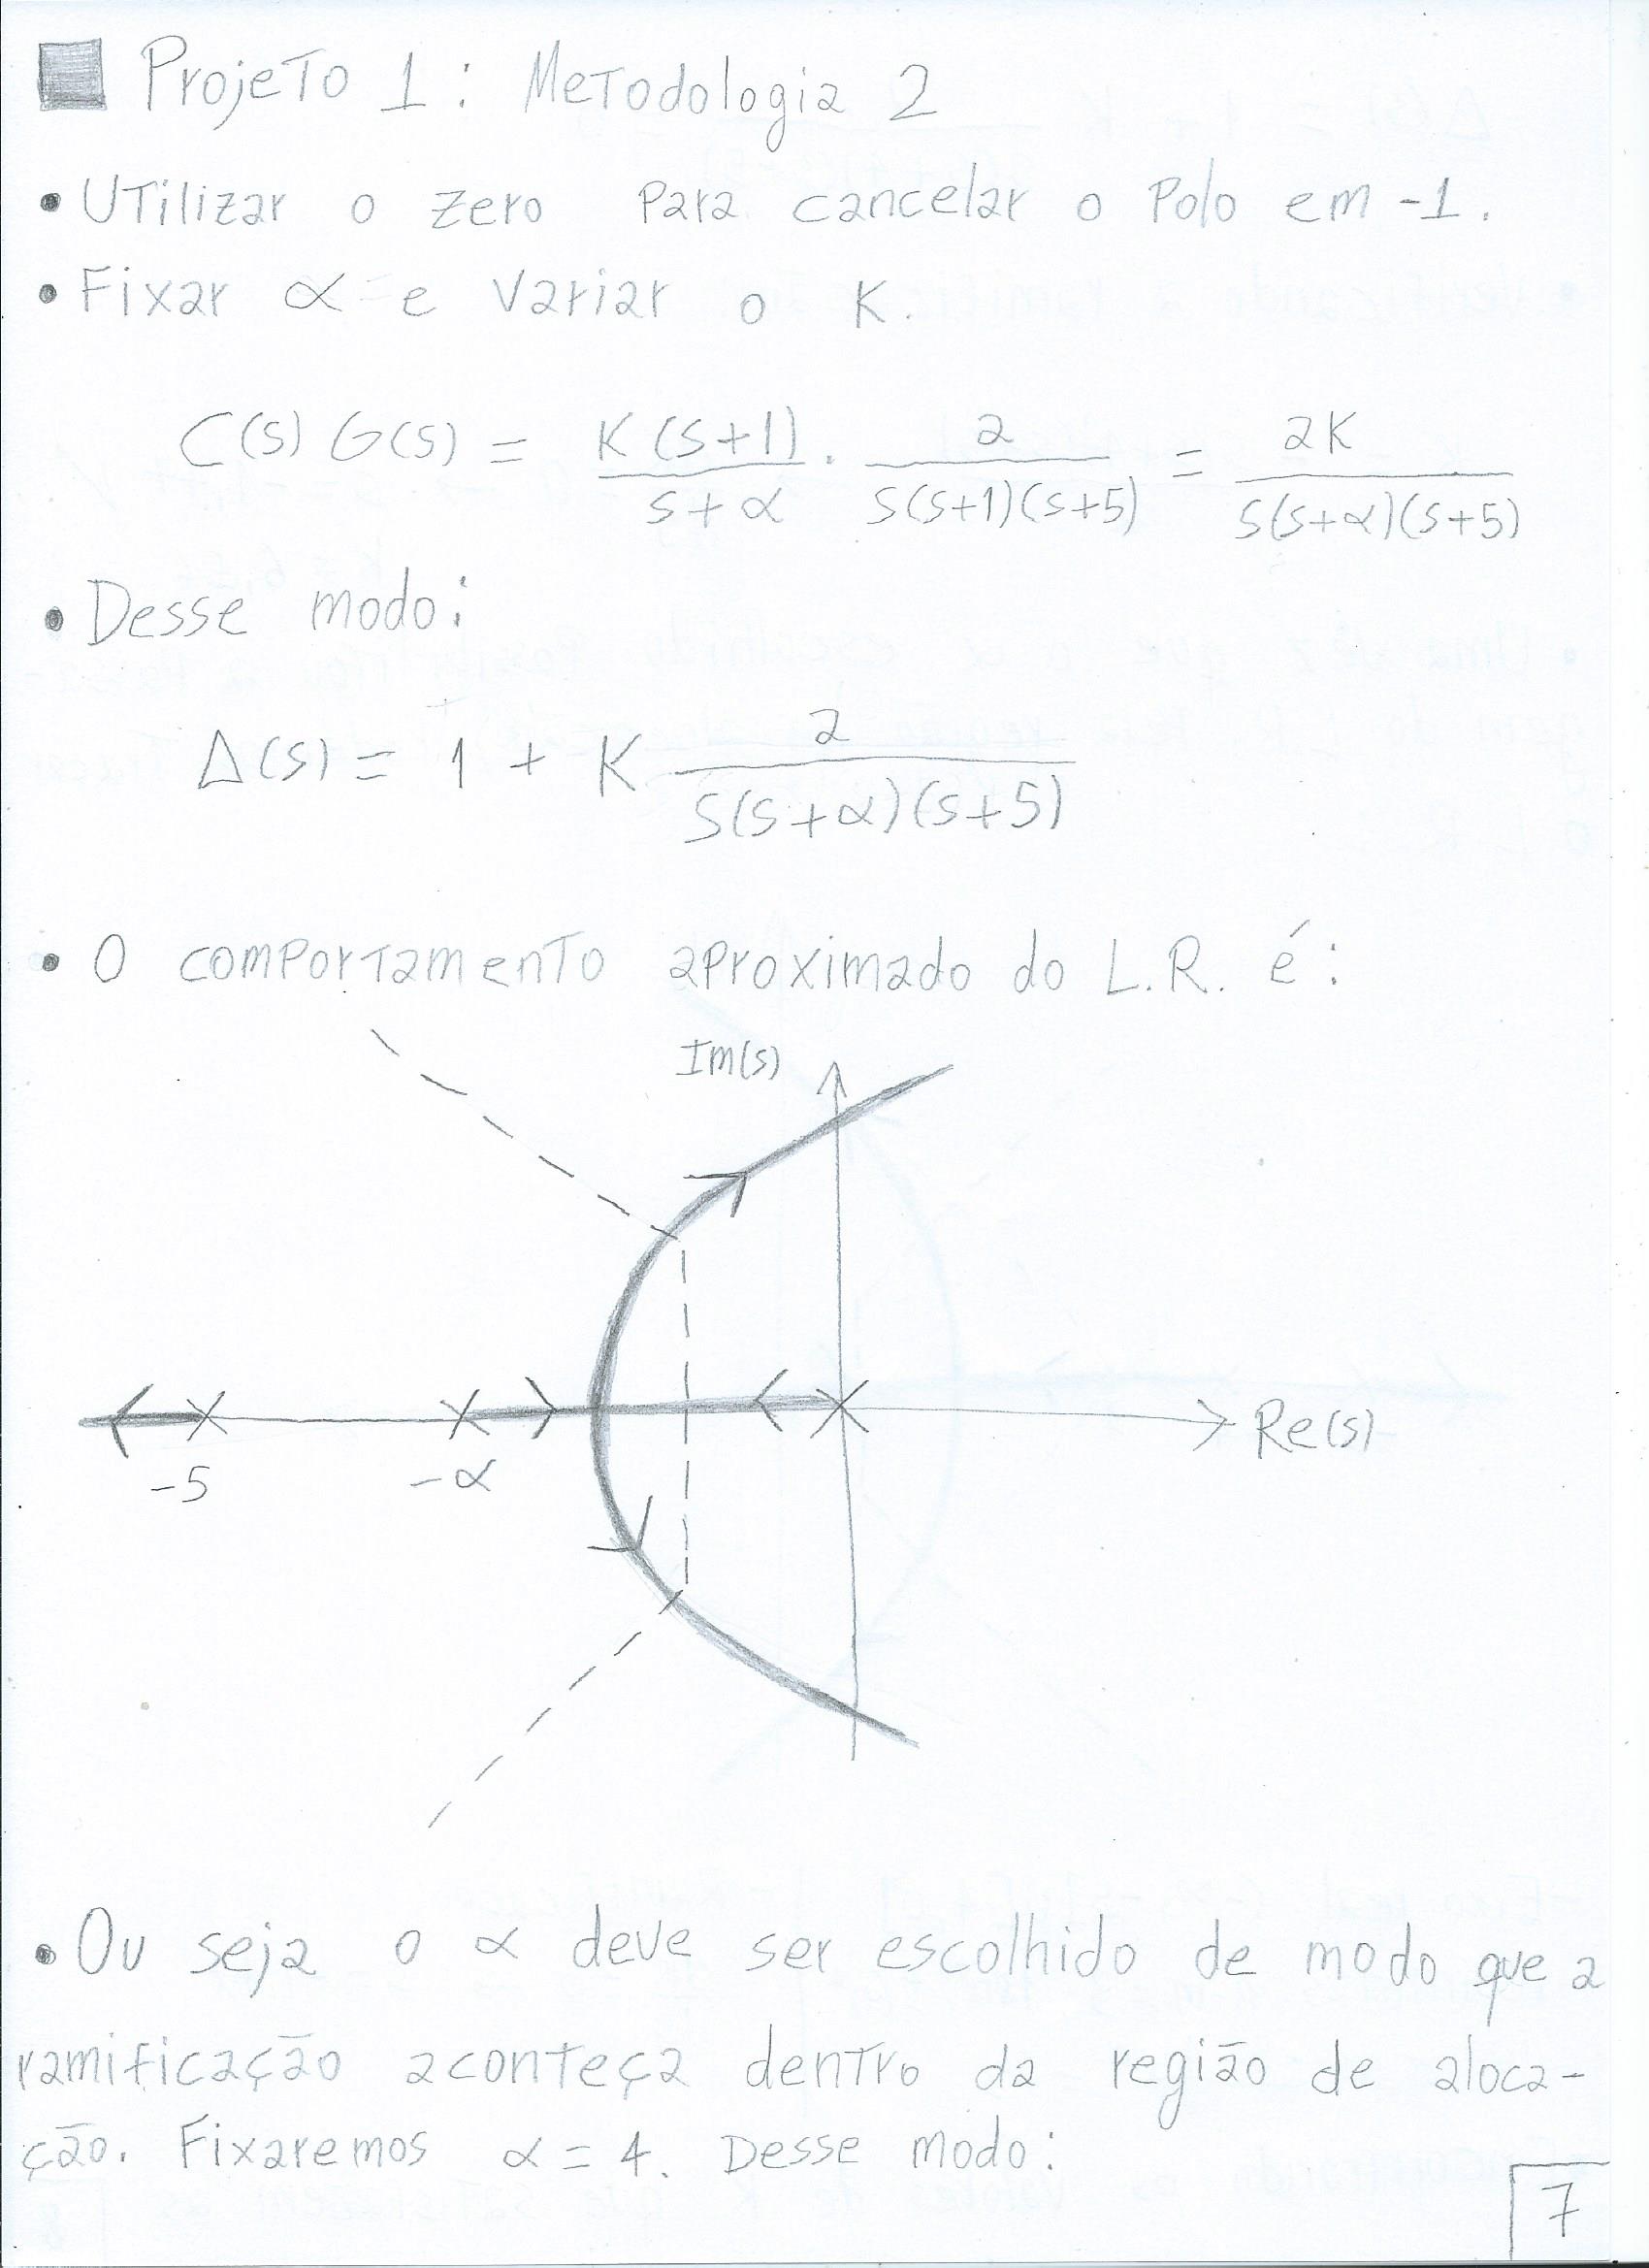 Projeto 1: Metodologia 2
• Utilizar o zero para cancelar o polo em -1.
• Fixar α e variar o K.
C(s) G(s) = K(s+1)/(s+α) · 2/(s(s+1)(s+5)) = 2K/(s(s+α)(s+5))
• Desse modo:
Δ(s) = 1 + K 2/(s(s+α)(s+5))
• O comportamento aproximado do L.R. é:
Im(s)
Re(s)
-5
-α
• Ou seja o α deve ser escolhido de modo que a
ramificação aconteça dentro da região de aloca-
ção. Fixaremos α = 4. Desse modo:
7